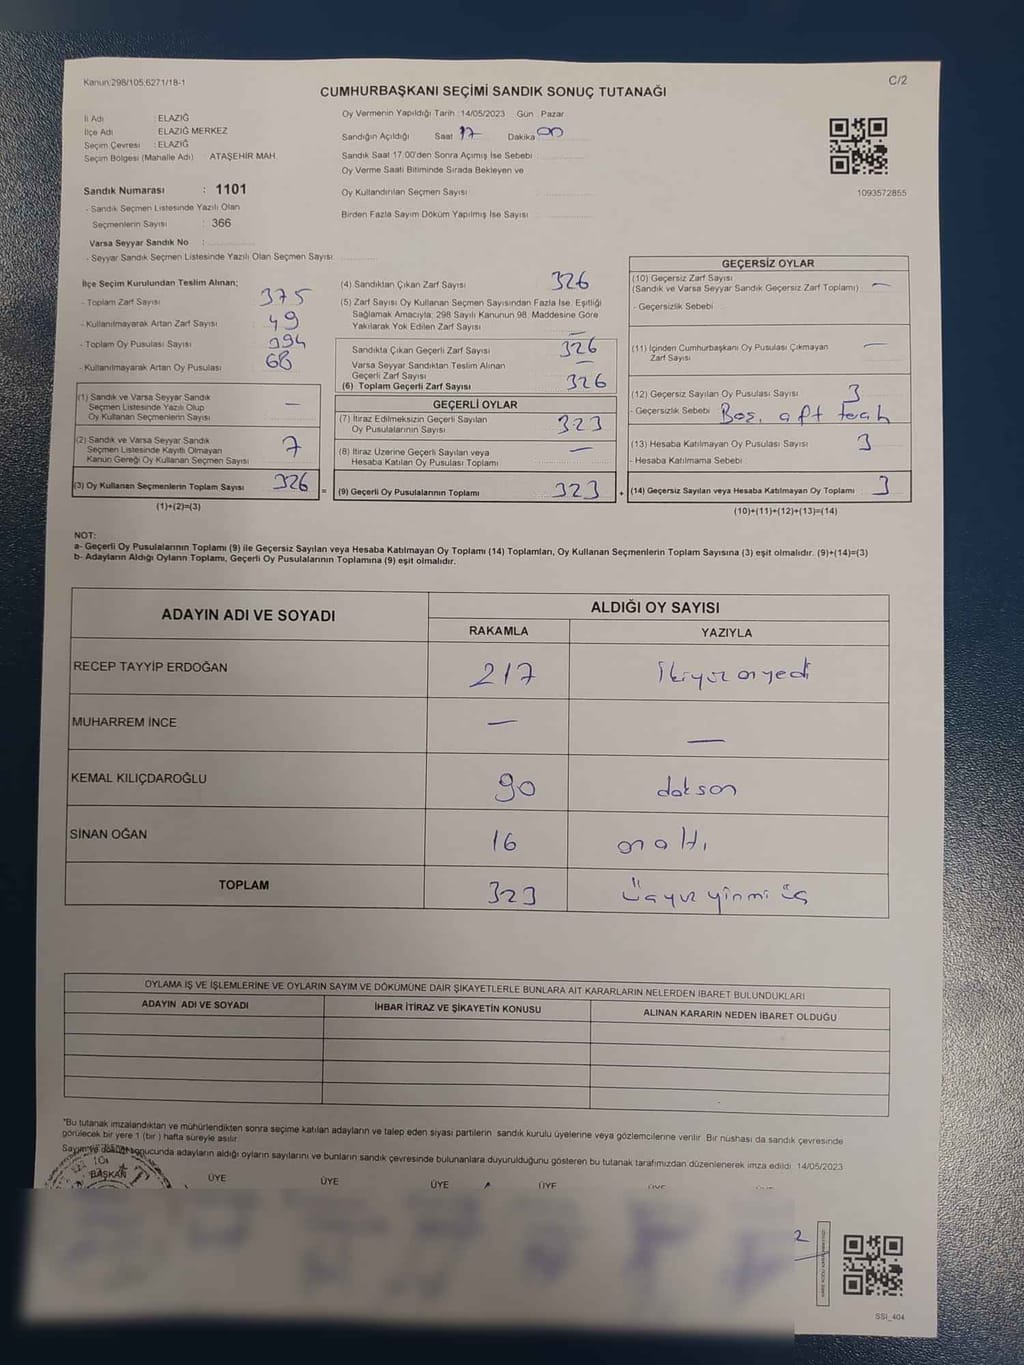 Kanun:298/105;6271/18-1
C/2
CUMHURBAŞKANI SEÇİMİ SANDIK SONUÇ TUTANAĞI
İl Adı : ELAZIĞ
İlçe Adı : ELAZIĞ MERKEZ
Seçim Çevresi : ELAZIĞ
Seçim Bölgesi (Mahalle Adı) : ATAŞEHİR MAH.
Sandık Numarası : 1101
- Sandık Seçmen Listesinde Yazılı Olan
Seçmenlerin Sayısı : 366
Varsa Seyyar Sandık No :
- Seyyar Sandık Seçmen Listesinde Yazılı Olan Seçmen Sayısı:
Oy Vermenin Yapıldığı Tarih :14/05/2023 Gün : Pazar
Sandığın Açıldığı Saat 17 Dakika 00
Sandık Saat 17:00'den Sonra Açımış İse Sebebi
Oy Verme Saati Bitiminde Sırada Bekleyen ve
Oy Kullandırılan Seçmen Sayısı
Birden Fazla Sayım Döküm Yapılmış İse Sayısı
1093572855
İlçe Seçim Kurulundan Teslim Alınan;
- Toplam Zarf Sayısı 375
- Kullanılmayarak Artan Zarf Sayısı 49
- Toplam Oy Pusulası Sayısı 394
- Kullanılmayarak Artan Oy Pusulası 68
(1) Sandık ve Varsa Seyyar Sandık
Seçmen Listesinde Yazılı Olup
Oy Kullanan Seçmenlerin Sayısı —
(2) Sandık ve Varsa Seyyar Sandık
Seçmen Listesinde Kayıtlı Olmayan
Kanun Gereği Oy Kullanan Seçmen Sayısı 7
(3) Oy Kullanan Seçmenlerin Toplam Sayısı 326 =
(1)+(2)=(3)
(4) Sandıktan Çıkan Zarf Sayısı 326
(5) Zarf Sayısı Oy Kullanan Seçmen Sayısından Fazla İse, Eşitliği
Sağlamak Amacıyla; 298 Sayılı Kanunun 98. Maddesine Göre
Yakılarak Yok Edilen Zarf Sayısı —
Sandıkta Çıkan Geçerli Zarf Sayısı 326
Varsa Seyyar Sandıktan Teslim Alınan
Geçerli Zarf Sayısı —
(6) Toplam Geçerli Zarf Sayısı 326
GEÇERLİ OYLAR
(7) İtiraz Edilmeksizin Geçerli Sayılan
Oy Pusulalarının Sayısı 323
(8) İtiraz Üzerine Geçerli Sayılan veya
Hesaba Katılan Oy Pusulası Toplamı —
(9) Geçerli Oy Pusulalarının Toplamı 323 +
GEÇERSİZ OYLAR
(10) Geçersiz Zarf Sayısı
(Sandık ve Varsa Seyyar Sandık Geçersiz Zarf Toplamı) —
- Geçersizlik Sebebi :
(11) İçinden Cumhurbaşkanı Oy Pusulası Çıkmayan
Zarf Sayısı —
(12) Geçersiz Sayılan Oy Pusulası Sayısı 3
- Geçersizlik Sebebi : Boş,
(13) Hesaba Katılmayan Oy Pusulası Sayısı 3
- Hesaba Katılmama Sebebi :
(14) Geçersiz Sayılan veya Hesaba Katılmayan Oy Toplamı 3
(10)+(11)+(12)+(13)=(14)
NOT:
a- Geçerli Oy Pusulalarının Toplamı (9) ile Geçersiz Sayılan veya Hesaba Katılmayan Oy Toplamı (14) Toplamları, Oy Kullanan Seçmenlerin Toplam Sayısına (3) eşit olmalıdır. (9)+(14)=(3)
b- Adayların Aldığı Oyların Toplamı, Geçerli Oy Pusulalarının Toplamına (9) eşit olmalıdır.
ADAYIN ADI VE SOYADI
ALDIĞI OY SAYISI
RAKAMLA YAZIYLA
RECEP TAYYİP ERDOĞAN 217 İkiyüz onyedi
MUHARREM İNCE — —
KEMAL KILIÇDAROĞLU 90 doksan
SİNAN OĞAN 16 onaltı
TOPLAM 323 Üçyüz yirmi üç
OYLAMA İŞ VE İŞLEMLERİNE VE OYLARIN SAYIM VE DÖKÜMÜNE DAİR ŞİKAYETLERLE BUNLARA AİT KARARLARIN NELERDEN İBARET BULUNDUKLARI
ADAYIN ADI VE SOYADI İHBAR İTİRAZ VE ŞİKAYETİN KONUSU ALINAN KARARIN NEDEN İBARET OLDUĞU
*Bu tutanak imzalandıktan ve mühürlendikten sonra seçime katılan adayların ve talep eden siyasi partilerin sandık kurulu üyelerine veya gözlemcilerine verilir. Bir nüshası da sandık çevresinde
görülecek bir yere 1 (bir ) hafta süreyle asılır.
Sayım ve döküm sonucunda adayların aldığı oyların sayılarını ve bunların sandık çevresinde bulunanlara duyurulduğunu gösteren bu tutanak tarafımızdan düzenlenerek imza edildi. 14/05/2023
BAŞKAN ÜYE ÜYE ÜYE ÜYE
SSI_404